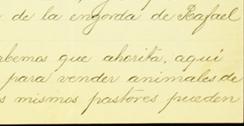 de la engorda de Rafael
abemos que ahorita, aquí
para vender animales de
s mismos pastores pueden